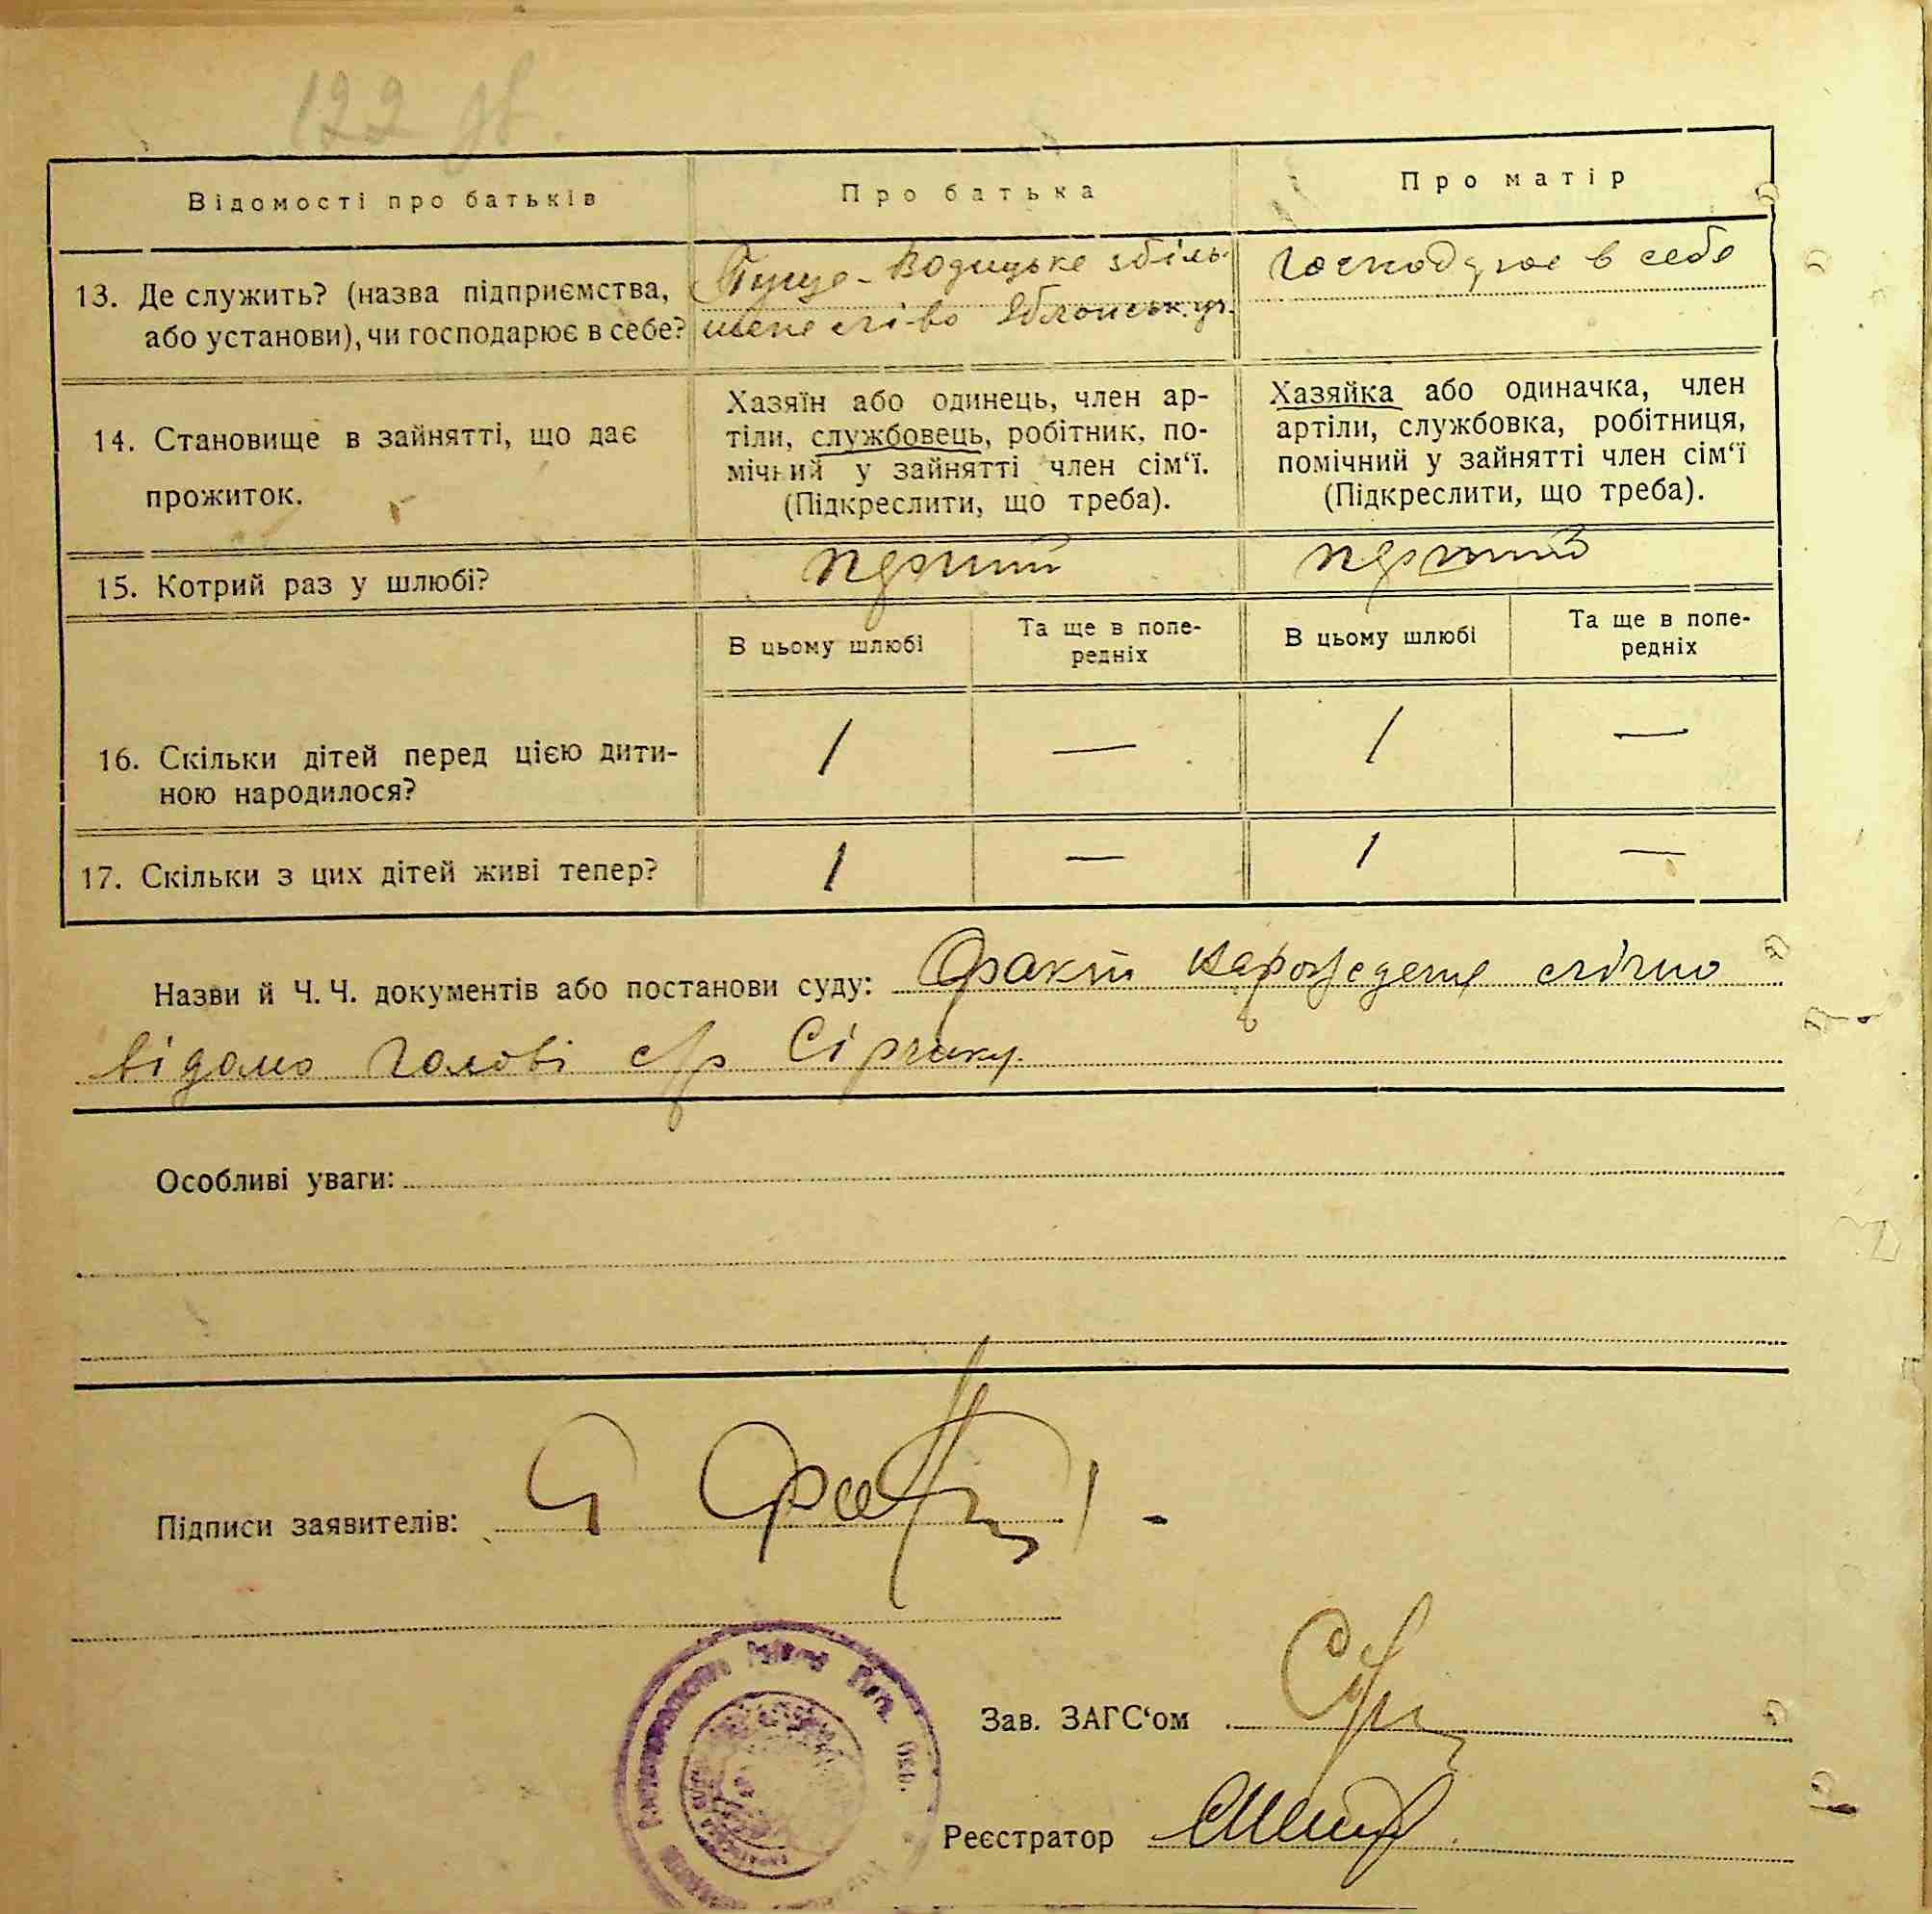 122 зв.
Відомості про батьків
Про батька
Про матір
13. Де служить? (назва підприємства,
або установи), чи господарює в себе?
Пуще-Водицьке збіль-
шене лі-во
Господарює в себе
14. Становище в зайнятті, що дає
прожиток.
Хазяїн або одинець, член ар-
тіли, службовець, робітник, по-
мічний у зайнятті член сім‘ї.
(Підкреслити, що треба).
Хазяйка або одиначка, член
артіли, службовка, робітниця,
помічний у зайнятті член сім‘ї
(Підкреслити, що треба).
15. Котрий раз у шлюбі?
перший
перший
В цьому шлюбі
Та ще в попе-
редніх
В цьому шлюбі
Та ще в попе-
редніх
16. Скільки дітей перед цією дити-
ною народилося?
1 — 1 —
17. Скільки з цих дітей живі тепер?
1 — 1 —
Назви й Ч. Ч. документів або постанови суду: Факт народження
відомо голові с/р Сірчику.
Особливі уваги:
Підписи заявителів:
Зав. ЗАГС‘ом
Реєстратор